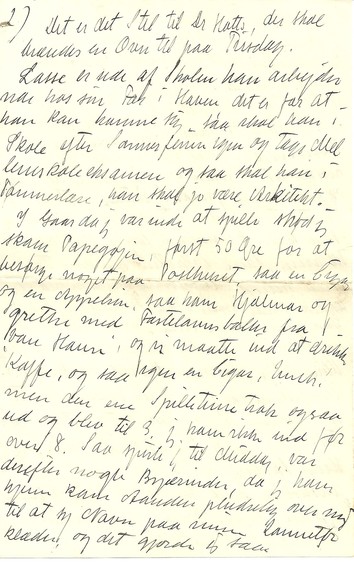 2) Det er det Stel til Dr Hatts, der skal
brændes en Ovn til paa Tirsdag.
Lasse er ude af Skolen han arbejder
nu hos sin Far i Haven det er for at
han kan komme sig, saa skal han i
Skole efter Sommerferien igen og tage Mel
lemskoleeksamen og saa skal han i
Tømmerlære, han skal jo være Arkitekt.
I Gaar da jeg var ude at spille skød jeg
skam Papegøjen, først 50 Øre for at
besørge noget paa Posthuset, saa en Cigar
og en Appelsin, saa kom Hjalmar og
Grethe med Fastelavnsboller fra
"van Hauen", og vi maatte ind at drikke
Kaffe, og saa igen en Cigar,
men den ene Spilletime trak ogsaa
ud og blev til 3, jeg kom ikke ind før
over 8. Saa spiste jeg til Middag, var
derefter nogle Byærinder, da jeg kom
hjem kom Aanden pludselig over mig
til at sy Navn paa mine Lommetør
klæder, og det gjorde jeg saa